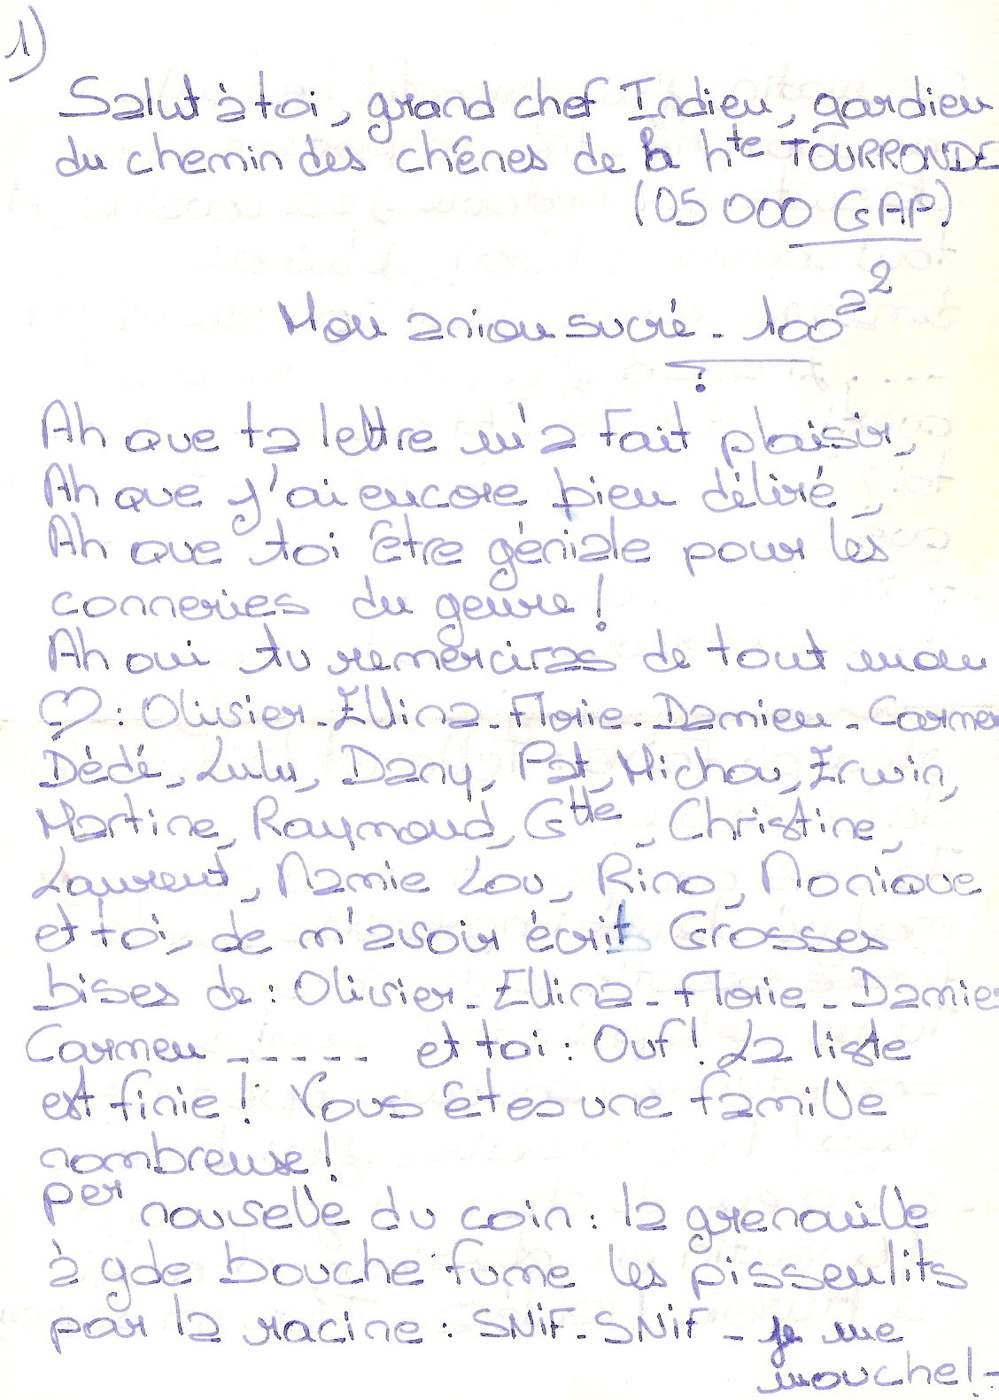 1)
Salut à toi, grand chef Indien, gardien
du chemin des chênes de la hte TOURRONDE
(05 000 GAP)
Mon anion sucré - 100²²
?
Ah que ta lettre m'a fait plaisir,
Ah que j'ai encore bien déliré,
Ah que toi être géniale pour les
conneries du genre!
Ah oui tu remerciras de tout mon
♡ : Olivier - Ellina - Florie - Damien - Carmen
Dédé, Lulu, Dany, Pat, Michou, Erwin,
Martine, Raymond, Gtte, Christine,
Laurent, Mamie Lou, Rino, Monique
et toi, de m'avoir écrit Grosses
bises de : Olivier - Ellina - Florie - Damien
Carmen ----- et toi : Ouf! La liste
est finie! Vous êtes une famille
nombreuse!
per nouvelle du coin : la grenouille
à gde bouche fume les pissenlits
par la racine : SNIF - SNIF - je me
mouche! -